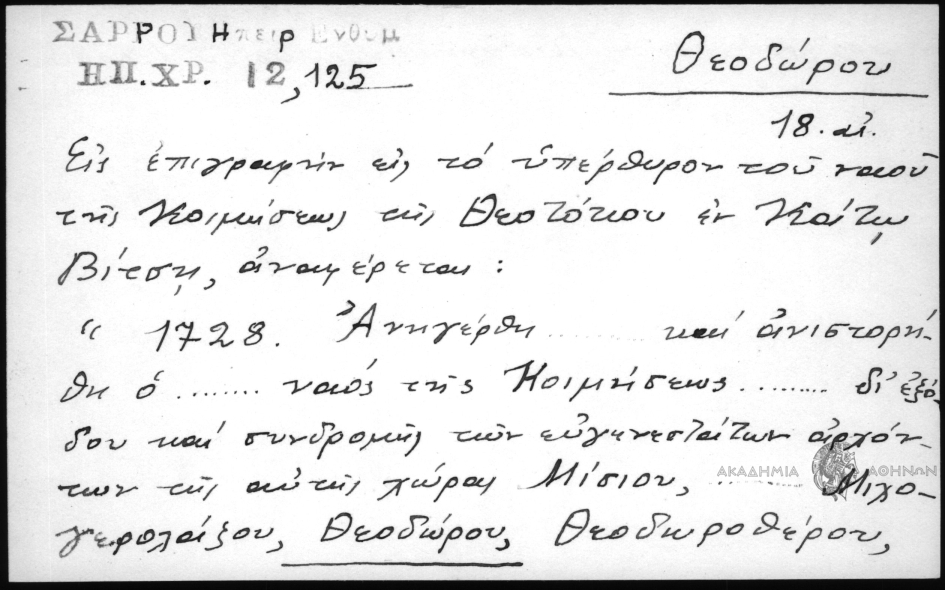 ΣΑΡΡΟΥ Ηπειρ Ενθυμ
ΗΠ.ΧΡ. 12,125
Θεοδώρου
18. αἰ.
Εἰς ἐπιγραφὴν εἰς τὸ ὑπέρθυρον τοῦ ναοῦ
τῆς Κοιμήσεως τῆς Θεοτόκου ἐν Κάτω
Βίτσῃ, ἀναφέρεται :
“ 1728. Ἀνηγέρθη ........ καὶ ἀνιστορή-
θη ὁ ........ ναὸς τῆς Κοιμήσεως ......... δι' ἐξό-
δου καὶ συνδρομῆς τῶν εὐγενεστάτων ἀρχόν-
των τῆς αὐτῆς χώρας Μίσιου, ........ Μιχο-
ΑΚΑΔΗΜΙΑ ΑΘΗΝΩΝ
Θεοδώρου, Θεοδωροθέρου,